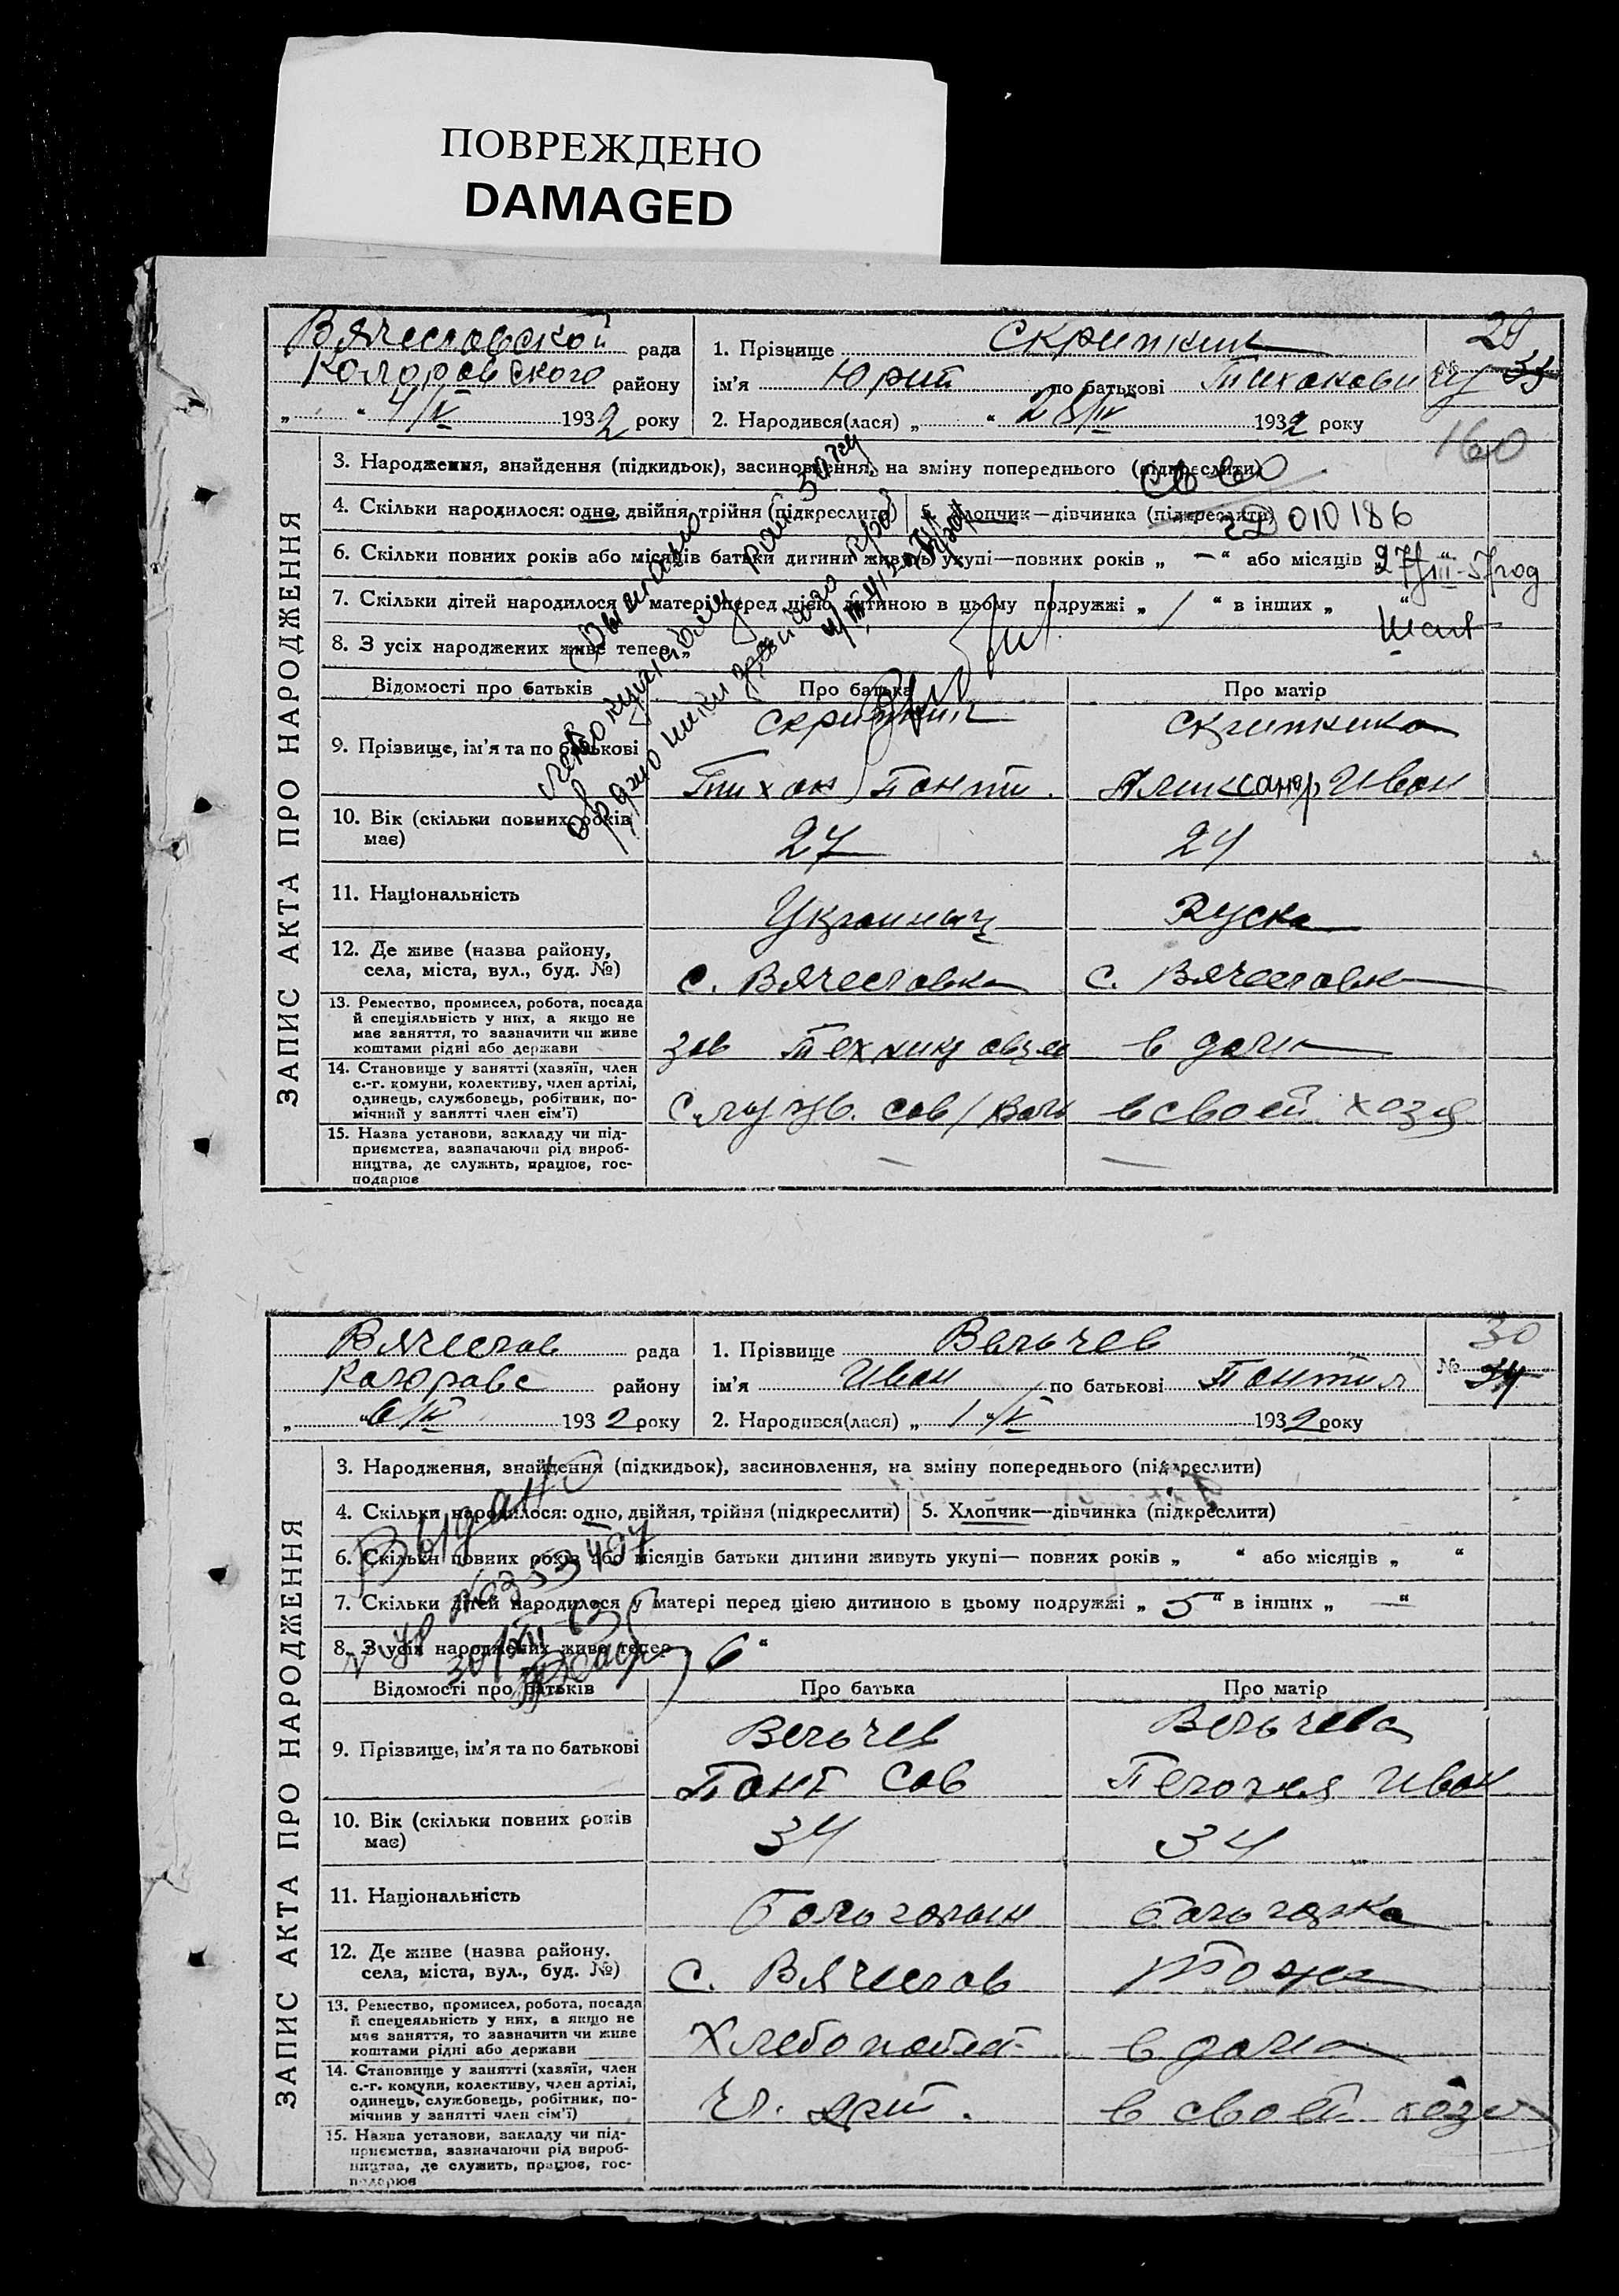 ПОВРЕЖДЕНО
DAMAGED
Вячеславской рада
Коларовского району
„ “ 4/V 1932 року
1. Прізвище Скрипкин
ім'я Юрий по батькові Тихонович
2. Народився(лася) „ “ 28/IV 1932 року
29
№ 33
160
ЗАПИС АКТА ПРО НАРОДЖЕННЯ
3. Народження, знайдення (підкидьок), засиновлення, на зміну попереднього (підкреслити)
4. Скільки народилося: одно, двійня, трійня (підкреслити)
5. Хлопчик—дівчинка (підкреслити)
св во
010186
27/III-57 год
6. Скільки повних років або місяців батьки дитини живуть укупі—повних років „ — “ або місяців „ “
7. Скільки дітей народилося у матері перед цією дитиною в цьому подружжі „ 1 “ в інших „ “
8. З усіх народжених живе тепер „
Відомості про батьків
Про батька
Про матір
9. Прізвище, ім'я та по батькові
Скрипкин
Тихон Панти.
Скрипкина
Александр Иван
10. Вік (скільки повних років має)
27
24
11. Національність
Украинец
Руска
12. Де живе (назва району,
села, міста, вул., буд. №)
с. Вячеславка
с. Вячеславк
13. Ремество, промисел, робота, посада
й спеціяльність у них, а якщо не
має заняття, то зазначити чи живе
коштами рідні або держави
зав техник
в дому
14. Становище у занятті (хазяїн, член
с.-г. комуни, колективу, член артілі,
одинець, службовець, робітник, по-
мічний у занятті член сім'ї)
Служ. сов
в своей хозя
15. Назва установи, закладу чи під-
приємства, зазначаючи рід вироб-
ництва, де служить, працює, гос-
подарює
— —
Вячеслав рада
Коларовс району
„ “ 6/V 1932 року
1. Прізвище Вельчев
ім'я Иван по батькові Пантил
2. Народився(лася) „ 1 “ /V 1932 року
30
№ 34
ЗАПИС АКТА ПРО НАРОДЖЕННЯ
3. Народження, знайдення (підкидьок), засиновлення, на зміну попереднього (підкреслити)
4. Скільки народилося: одно, двійня, трійня (підкреслити)
5. Хлопчик—дівчинка (підкреслити)
6. Скільки повних років або місяців батьки дитини живуть укупі— повних років „ “ або місяців „ “
7. Скільки дітей народилося у матері перед цією дитиною в цьому подружжі „ 5 “ в інших „ — “
8. З усіх народжених живе тепер 6 “
Выдано
Відомості про батьків
Про батька
Про матір
9. Прізвище, ім'я та по батькові
Вельчев
Пант Сав
Вельчева
Пелагея Иван
10. Вік (скільки повних років
має)
34
34
11. Національність
Больгарин
болгарка
12. Де живе (назва району.
села, міста, вул., буд. №)
с. Вячеслав
тоже
13. Ремество, промисел, робота, посада
й спецеяльність у них, а якщо не
має заняття, то зазначити чи живе
коштами рідні або держави
Хлебопаш
в дому
14. Становище у занятті (хазяїн, член
с.-г. комуни, колективу, член артілі,
одинець, службовець, робітник, по-
мічнив у занятті член сім'ї)
Чл. арт.
в своей хозя
15. Назва установи, закладу чи під-
приємства, зазначаючи рід вироб-
ництва, де служить, працює, гос-
подарює